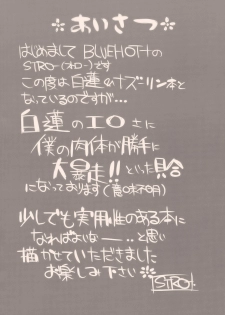 *あいさつ*
はじめまして BLUEHOTの
STRO-(ストロー)です
この度は白蓮&ナズーリン本と
なっているのですが…
白蓮のエロさに
僕の肉体が勝手に
大暴走!!といった具合
になっております(意味不明)
少しでも実用性のある本に
なればよいな―‥と思い
描かせていただきました
お楽しみ下さい*
STRO!